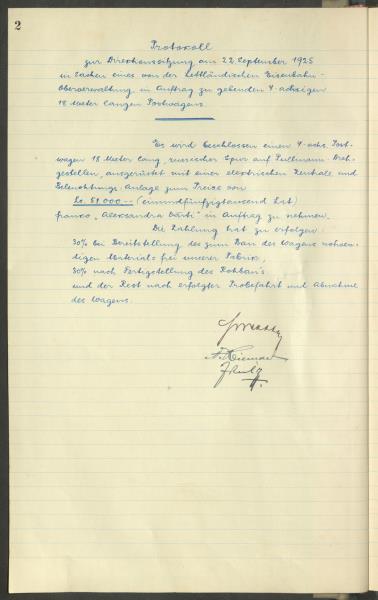 2
Protokoll
zur Direktionssitzung am 22. September 1925
in Sachen eines von der Lettländischen Eisenbahn-
Oberverwaltung in Auftrag zu gebenden 4-achsigen
18 Meter langen Postwagens.
Es wird beschlossen einen 4-achs. Post-
wagen 18 Meter lang, russischer Spur auf Pullmann-Dreh-
gestellen, ausgerüstet mit einer elektrischen Zentrale und
Beleuchtungs-Anlage zum Preise von
Ls. 51.000.-- (einundfünfzigtausend Lat)
franko "Aleksandra Vārti" in Auftrag zu nehmen.
Die Zahlung hat zu erfolgen:
30% bei Bereitstellung des zum Bau des Wagens notwen-
digen Materials frei unserer Fabrik,
30% nach Fertigstellung des Rohbau's
und der Rest nach erfolgter Probefahrt und Abnahme
des Wagens.